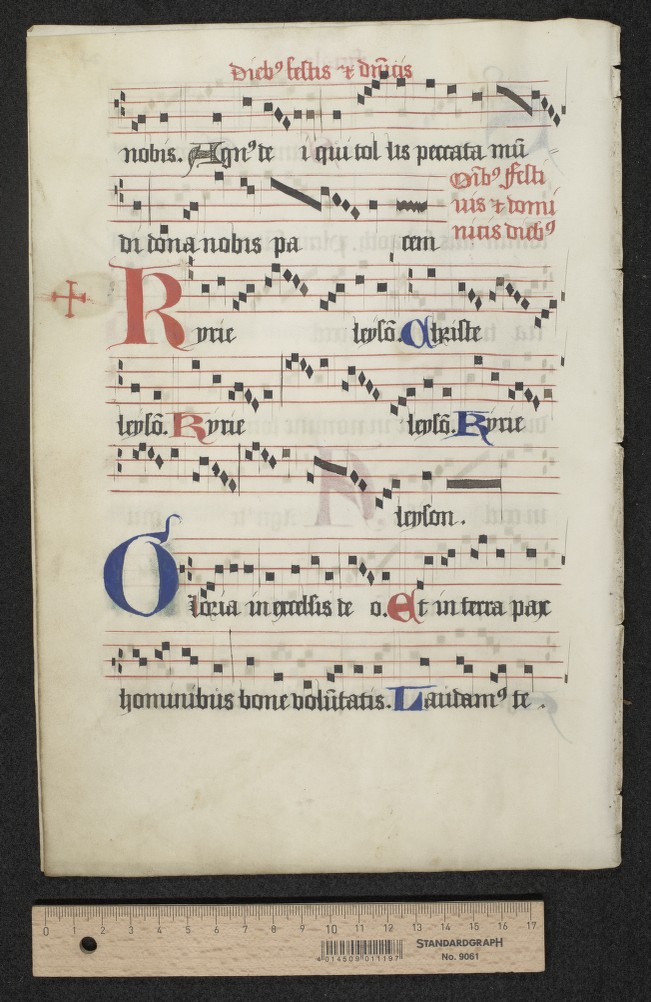 Dieb⁹ festis ⁊ dn̄icis
nobis. Agn⁹ de i qui tol lis peccata mū
di dona nobis pa cem
Oīb⁹ festi
uis ⁊ domi
nicis dieb⁹
Kyrie leysō. Christe
leysō. Kyrie leysō. Kyrie
leyson.
Gloria in excelsis de o. Et in terra pax
hominibus bone volūtatis. Laudam⁹ te.
0 1 2 3 4 5 6 7 8 9 10 11 12 13 14 15 16 17
4 014509 011197
STANDARDGRAPH
No. 9061